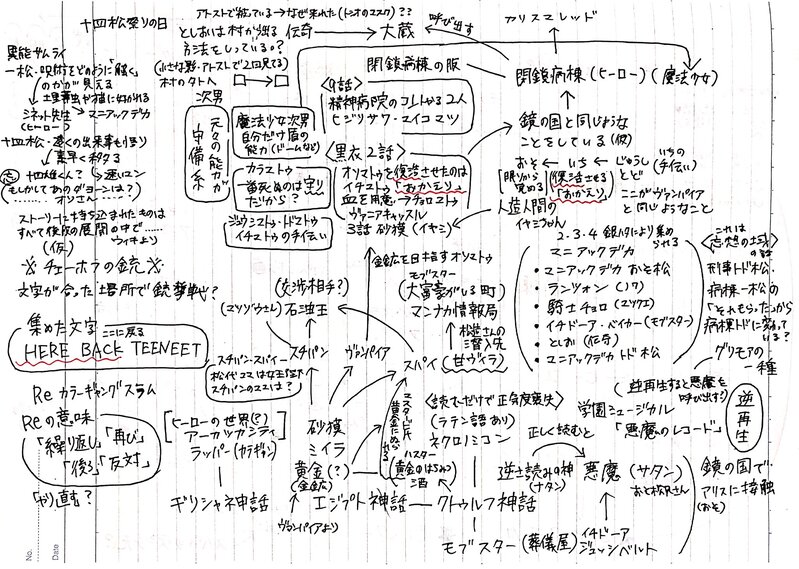 十四松祭りの日
アトストで描いている→なぜ来れた(トシオのマスク)??
としおは村が出る
方法をしっている。?
(小さな影・アトストで2回見てる)
村のタトへ □→□
伝奇→大蔵
呼び出す
アリスマレッド
閉鎖病棟の隣
閉鎖病棟(ヒーロー)(魔法少女)
異能サムライ
一松・呪術をどのように「騒ぐ」
のかが見える
シネット先生→マニアックデカ
(ヒーロー)
十四松・遠くの出来事も悟り
素早く移動る
十四雄くん?→速いコン
(もしかしてあのダヨーンは?)
オジさん
ストーリーに持ち込まれたものは
すべて後次の展開の中で……
(仮) ウィキより
※チェーホフの銃※
文字が合った場所で銃撃戦?
次男
元々の能力が
守備系
魔法少女次男
自分だけ盾の
能力(ドームなど)
カラストゥ
一番死ぬのは守り
だから?
ジュウシストゥ・ドストゥ
イチストゥの手伝い
<9話>
精神病院のコレトかる2人
ヒジリサワ・マイコマツ
<黒衣2話>
オソストゥを復活させたのは
イチストゥ「おかえり」
血を用意→チョロスト
ヴァニアキャッスル
3話 砂漠(イヤミ)
鏡の国と同じような
ことをしている(仮)
おそ←いち←じゅうし
とど
いちの
(手伝い)
[眠りから
覚める]
復活させる
「おかえり」
ここがヴァンパイア
と同じようなこと
人造人間の
イヤミちゃん
集めた文字 ここに戻る
HERE BACK TEENEET
Re カラーギャングスラム
Reの意味
「繰り返し」「再び」
「後ろ」「反対」
「やり直す?
金鉱を目指すオソストゥ
モブスター
(大富豪がいる町)
マンナカ情報局
松造さんの
潜入先
(甘ヴィラ)
(交渉相手?)
(マソゾウさん)
石油王
スチパン・スパイー
松代コマは女王陛下
スチパンのコマは?
スチパン
ヴァンパイア
スパイ
2.3.4 銀ハタにより集め
られる
マニアックデカ
・マニアックデカ おそ松
・ランジョン(ノワ)
・騎士チョロ(マツクエ)
・イチドーア・ベイカー(モブスター)
・としお(伝奇)
・マニアックデカトド松
これは
<忘想の土或>の話
刑事トド松・
病棟一松の
「それもらった」から
病棟トドに変わって
いる?
グリモアの
一種
(逆再生すると悪魔を
呼び出す)
学園ミュージカル
「悪魔のレコード」
逆再生
[ヒーローの世界(?)
アーカッカシティ]
ラッパー(カラギャン)
砂漠
ミイラ
黄金(?)
(金鉱)
マスタード氏
黄金にぬられる
ハスター
(黄金のはちみつ
酒)
<読むだけで正気度喪失>
(ラテン語あり)
ネクロノミコン
正しく読むと
逆さ読みの神→悪魔(サタン)
(ナタン) おそ松沢さん
ギリシャネ神話
エジプト神話—クトゥルフ神話
ヴァンパイアより
鏡の国で
アリスに接触
(おそ)
モブスター(葬儀屋)イチドーア
ジュッシベルト
No.
Date